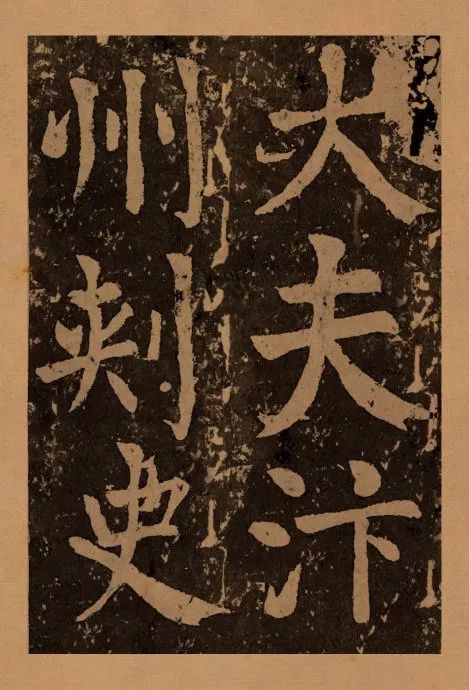 大夫汴
州刺史